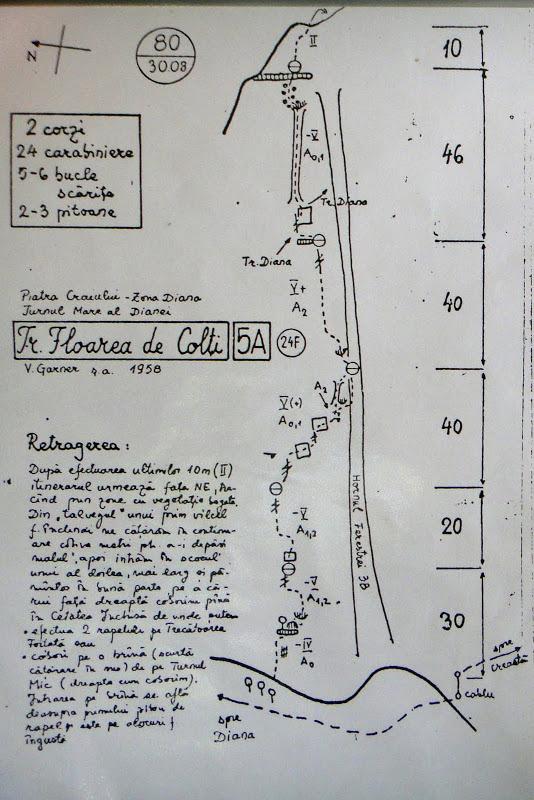 N
80
30.03
2 corzi
24 carabiniere
5-6 bucle
scărițe
2-3 pitoane
Piatra Craiului - Zona Diana
Turnul Mare al Dianei
Tr. Floarea de Colti 5A 24F
V. Garner ș.a. 1958
Retragerea:
După efectuarea ultimilor 10m (II)
itinerarul urmează fața NE,
cind prin zone cu vegetație
Din "talvegul" unui prim vîlcel
f. înclinat ne cățăram în continu-
are cîțiva metri pt. a-i depăși
malul, apoi intrăm în scocul
unui al doilea, mai larg și pă-
mîntos în bună parte pe a că-
rui față dreaptă coborîm pînă
în Cetatea Închisă de unde putem
• efectua 2 rapeluri pe Trecătoarea
Forțată sau
• coborî pe o brînă (scurtă
cățărare în sus) de pe Turnul
Mic (dreapta cum coborîm).
Intrarea pe brînă se află
deasupra primului piton de
rapel și este pe alocuri f
îngustă
II
-V
A0,1
Tr. Diana
Tr. Diana
V+
A2
A2
V(+)
A0,1
-V
A1,2
-V
A1,2
-IV
A0
Hornul Ferestrei 3B
10
46
40
40
20
30
spre
creastă
cablu
spre
Diana